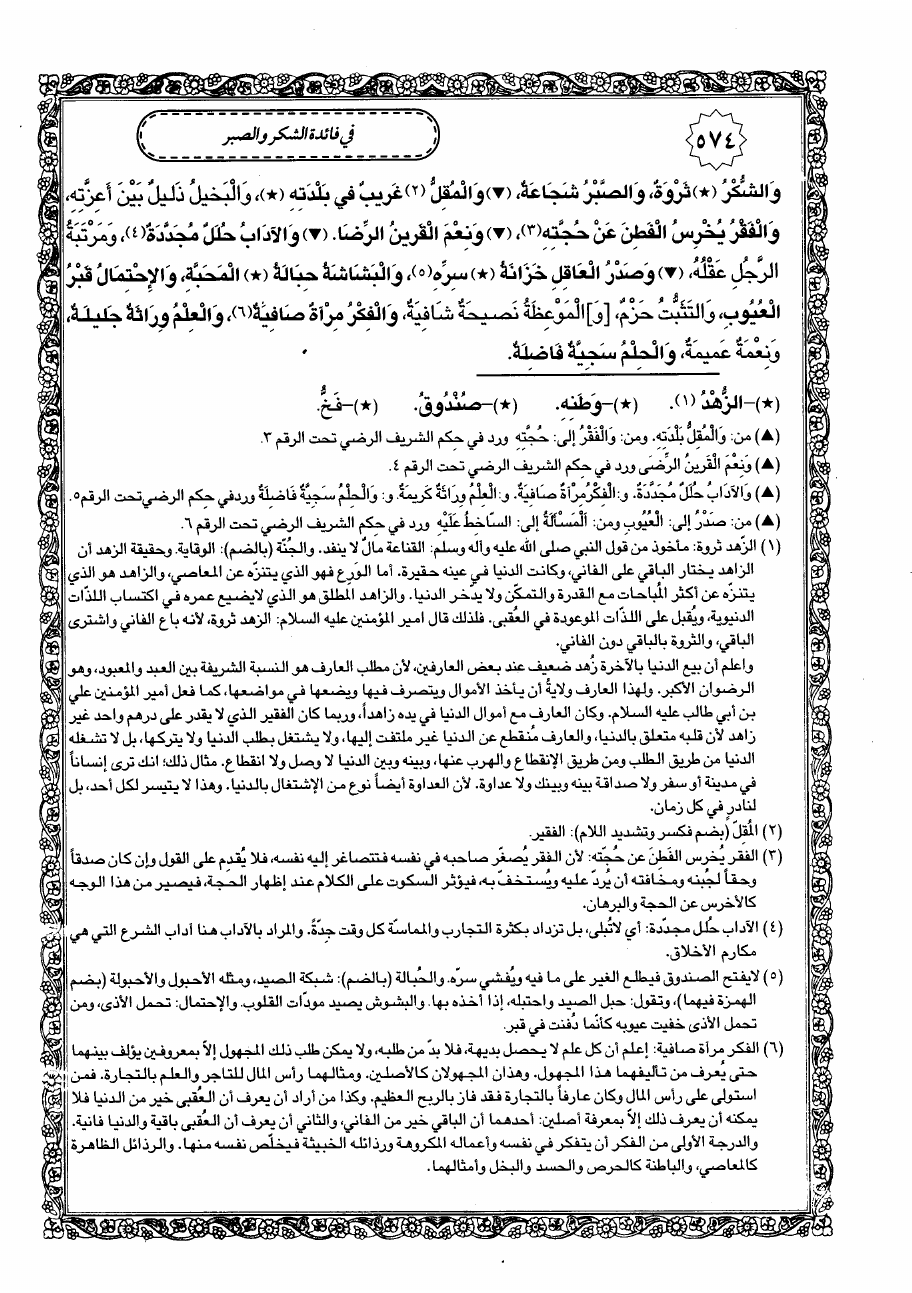 ٥٧٤
في فائدة الشكر والصبر
وَالشُّكْرُ (★) ثَرْوَةٌ، وَالصَّبْرُ شَجَاعَةٌ، (▼) وَالْمُقِلُّ (٢) غَرِيبٌ فِي بَلْدَتِهِ (★)، وَالْبَخِيلُ ذَلِيلٌ بَيْنَ أَعِزَّتِهِ،
وَالْفَقْرُ يُخْرِسُ الْفَطِنَ عَنْ حُجَّتِهِ (٣)، (▼) وَنِعْمَ الْقَرِينُ الرِّضَا. (▼) وَالآدَابُ حُلَلٌ مُجَدَّدَةٌ (٤)، وَمَرْتَبَةُ
الرَّجُلِ عَقْلُهُ، (▼) وَصَدْرُ الْعَاقِلِ خَزَانَةُ (★) سِرِّهِ (٥)، وَالْبَشَاشَةُ حِبَالَةُ (★) الْمَحَبَّةِ، وَالإِحْتِمَالُ قَبْرُ
الْعُيُوبِ، وَالتَّثَبُّتُ حَزْمٌ، [و] الْمَوْعِظَةُ نَصِيحَةٌ شَافِيَةٌ، وَالْفِكْرُ مِرْآةٌ صَافِيَةٌ (٦)، وَالْعِلْمُ وِرَاثَةٌ جَلِيلَةٌ،
وَنِعْمَةٌ عَمِيمَةٌ، وَالْحِلْمُ سَجِيَّةٌ فَاضِلَةٌ.
(★)–الزُّهْدُ (١). (★)–وَطَنِهِ. (★)–صُنْدُوقُ. (★)–فَخُّ.
(▲) من: وَالْمُقِلُّ بَلْدَتِهِ. ومن: وَالْفَقْرُ إلى: حُجَّتِهِ ورد في حكم الشريف الرضي تحت الرقم ٣.
(▲) وَنِعْمَ الْقَرِينُ الرِّضَى ورد في حكم الشريف الرضي تحت الرقم ٤.
(▲) وَالآدَابُ حُلَلٌ مُجَدَّدَةٌ. و: الْفِكْرُ مِرْآةٌ صَافِيَةٌ. و: الْعِلْمُ وِرَاثَةٌ كَرِيمَةٌ. و: وَالْحِلْمُ سَجِيَّةٌ فَاضِلَةٌ ورد في حكم الشريف الرضي تحت الرقم ٥.
(▲) من: صَدْرُ إلى: الْعُيُوبِ ومن: اَلْمَسْأَلَةُ إلى: السَّاخِطُ عَلَيْهِ ورد في حكم الشريف الرضي تحت الرقم ٦.
(١) الزهد ثروة: مأخوذ من قول النبي صلى الله عليه وآله وسلم: القناعة مالٌ لا ينفد. والجُنّة (بالضم): الوقاية. وحقيقة الزهد أن
الزاهد يختار الباقي على الفاني، وكانت الدنيا في عينه حقيرة. أما الوَرِع فهو الذي يتنزّه عن المعاصي، والزاهد هو الذي
يتنزّه عن أكثر المُباحات مع القدرة والتمكّن ولا يدّخر الدنيا. والزاهد المطلق هو الذي لايضيع عمره في اكتساب اللذّات
الدنيوية، ويُقبل على اللذّات الموعودة في العُقبى. فلذلك قال امير المؤمنين عليه السلام: الزهد ثروة، لأنه باع الفاني واشترى
الباقي، والثروة بالباقي دون الفاني.
واعلم أن بيع الدنيا بالآخرة زُهد ضعيف عند بعض العارفين، لأن مطلب العارف هو النسبة الشريفة بين العبد والمعبود، وهو
الرضوان الأكبر. ولهذا العارف ولايةُ أن يأخذ الأموال ويتصرف فيها ويضعها في مواضعها، كما فعل أمير المؤمنين علي
بن أبي طالب عليه السلام. وكان العارف مع أموال الدنيا في يده زاهداً، وربما كان الفقير الذي لا يقدر على درهم واحد غير
زاهد لأن قلبه متعلق بالدنيا، والعارف مُنقطع عن الدنيا غير ملتفت إليها، ولا يشتغل بطلب الدنيا ولا يتركها، بل لا تشغله
الدنيا من طريق الطلب ومن طريق الإنقطاع والهرب عنها، وبينه وبين الدنيا لا وصل ولا انقطاع. مثال ذلك؛ انك ترى إنساناً
في مدينة أو سفر ولا صداقة بينه وبينك ولا عداوة. لأن العداوة أيضاً نوع من الإشتغال بالدنيا. وهذا لا يتيسر لكل أحد، بل
لنادرٍ في كل زمان.
(٢) المُقلّ (بضم فكسر وتشديد اللام): الفقير.
(٣) الفقر يُخرس الفَطِنَ عن حُجّته: لأن الفقر يُصغّر صاحبه في نفسه فتتصاغر إليه نفسه، فلا يُقدم على القول وإن كان صدقاً
وحقاً لجُبنه ومخافته أن يُردّ عليه ويُستخفّ به، فيؤثر السكوت على الكلام عند إظهار الحجة، فيصير من هذا الوجه
كالأخرس عن الحجة والبرهان.
(٤) الآداب حُلل مجدّدة: أي لاتُبلى، بل تزداد بكثرة التجارب والماسّة كل وقت جدّةً. والمراد بالآداب هنا آداب الشرع التي هي
مكارم الأخلاق.
(٥) لايفتح الصندوق فيطلع الغير على ما فيه ويُفشي سرّه. والحُبالة (بالضم): شبكة الصيد، ومثله الأحبول والأحبولة (بضم
الهمزة فيهما)، وتقول: حبل الصيد واحتبله، إذا أخذه بها. والبشوش يصيد مودّات القلوب. والإحتمال: تحمل الأذى، ومن
تحمل الأذى خفيت عيوبه كأنّما دُفنت في قبر.
(٦) الفكر مرآة صافية: إعلم أن كل علم لا يحصل بديهة، فلا بدّ من طلبه، ولا يمكن طلب ذلك المجهول إلاّ بمعروفين يؤلف بينهما
حتى يُعرف من تأليفهما هذا المجهول. وهذان المجهولان كالأصلين. ومثالهما رأس المال للتاجر والعلم بالتجارة. فمن
استولى على رأس المال وكان عارفاً بالتجارة فقد فاز بالربح العظيم. وكذا من أراد أن يعرف أن العُقبى خير من الدنيا فلا
يمكنه أن يعرف ذلك إلاّ بمعرفة أصلين: أحدهما أن الباقي خير من الفاني، والثاني أن يعرف أن العُقبى باقية والدنيا فانية.
والدرجة الأولى من الفكر أن يتفكر في نفسه وأعماله المكروهة ورذائله الخبيثة فيخلّص نفسه منها. والرذائل الظاهرة
كالمعاصي، والباطنة كالحرص والحسد والبخل وأمثالهما.